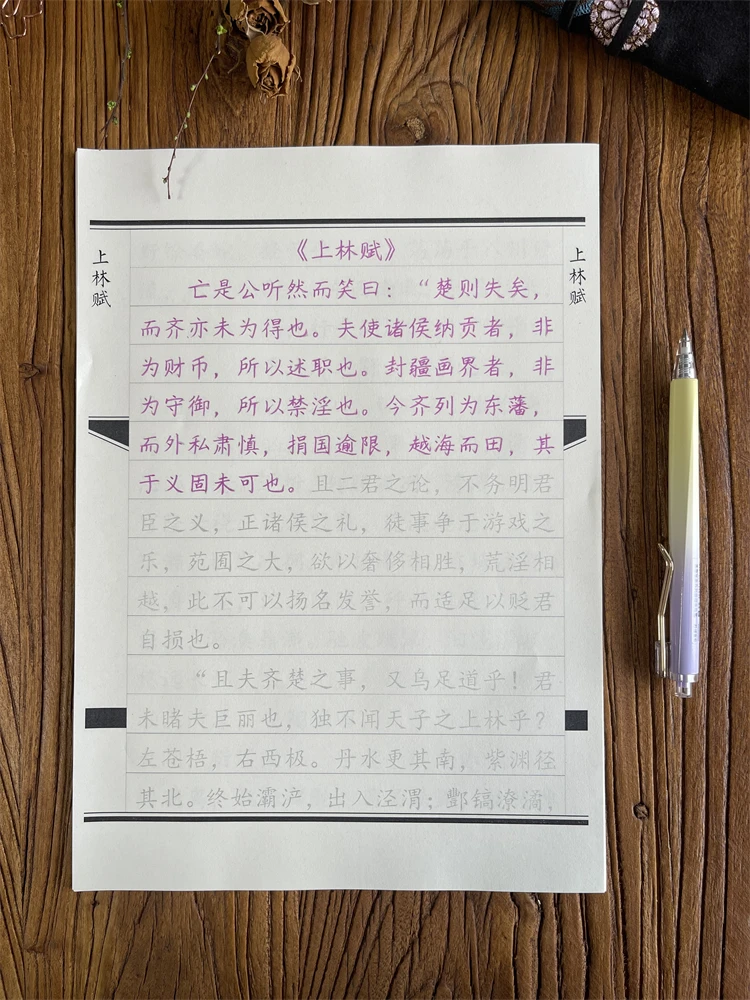 《上林赋》
亡是公听然而笑曰：“楚则失矣，
而齐亦未为得也。夫使诸侯纳贡者，非
为财币，所以述职也。封疆画界者，非
为守御，所以禁淫也。今齐列为东藩，
而外私肃慎，捐国逾限，越海而田，其
于义固未可也。且二君之论，不务明君
臣之义，正诸侯之礼，徒事争于游戏之
乐，苑囿之大，欲以奢侈相胜，荒淫相
越，此不可以扬名发誉，而适足以贬君
自损也。
“且夫齐楚之事，又乌足道乎！君
未睹夫巨丽也，独不闻天子之上林乎？
左苍梧，右西极。丹水更其南，紫渊径
其北。终始灞浐，出入泾渭；酆镐潦潏，
上林赋
上林赋